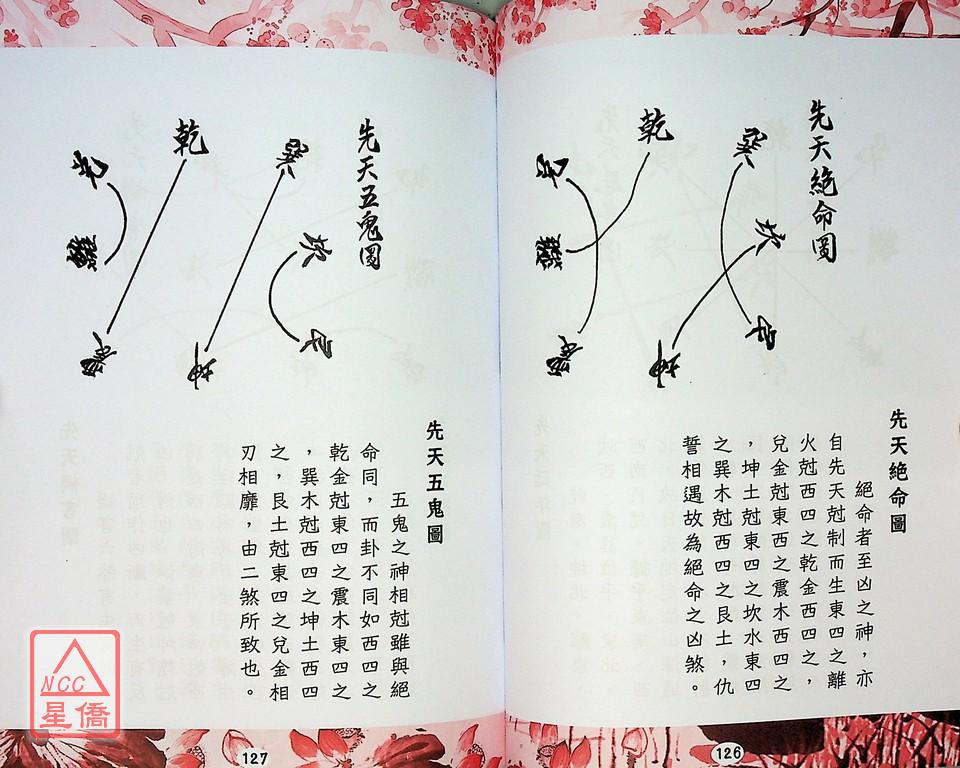 先天絕命圖
巽
乾
兌
坎
離
艮
坤
震
先天絕命圖
絕命者至凶之神，亦
自先天尅制而生東四之離
火尅西四之乾金西四之，
兌金尅東西之震木西四之
，坤土尅東四之坎水東四
之巽木尅西四之艮土，仇
誓相遇故為絕命之凶煞。
126
先天五鬼圖
巽
乾
兌
坎
離
艮
坤
震
先天五鬼圖
五鬼之神相尅雖與絕
命同，而卦不同如西四之
乾金尅東四之震木東四之
，巽木尅西四之坤土西四
之，艮土尅東四之兌金相
刃相靡，由二煞所致也。
127
NCC
星僑